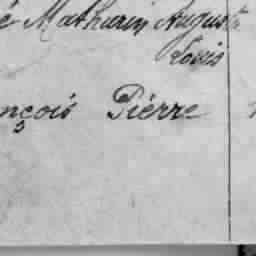 é Mathurin Auguste
Louis
nçois Pierre